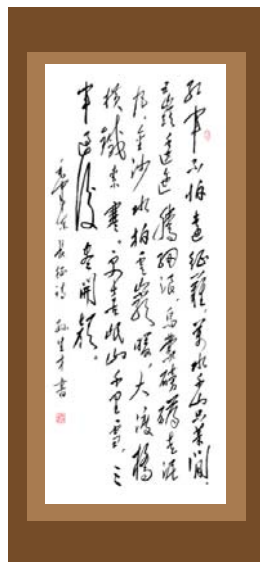 红军不怕遠征難,萬水千山只等闲。
五嶺逶迤腾细浪,烏蒙磅礴走泥
丸,金沙水拍云巖暖,大渡橋
横鐵索寒。更喜岷山千里雪,三
军过後尽開颜。
毛泽东 长征诗 孙生才书